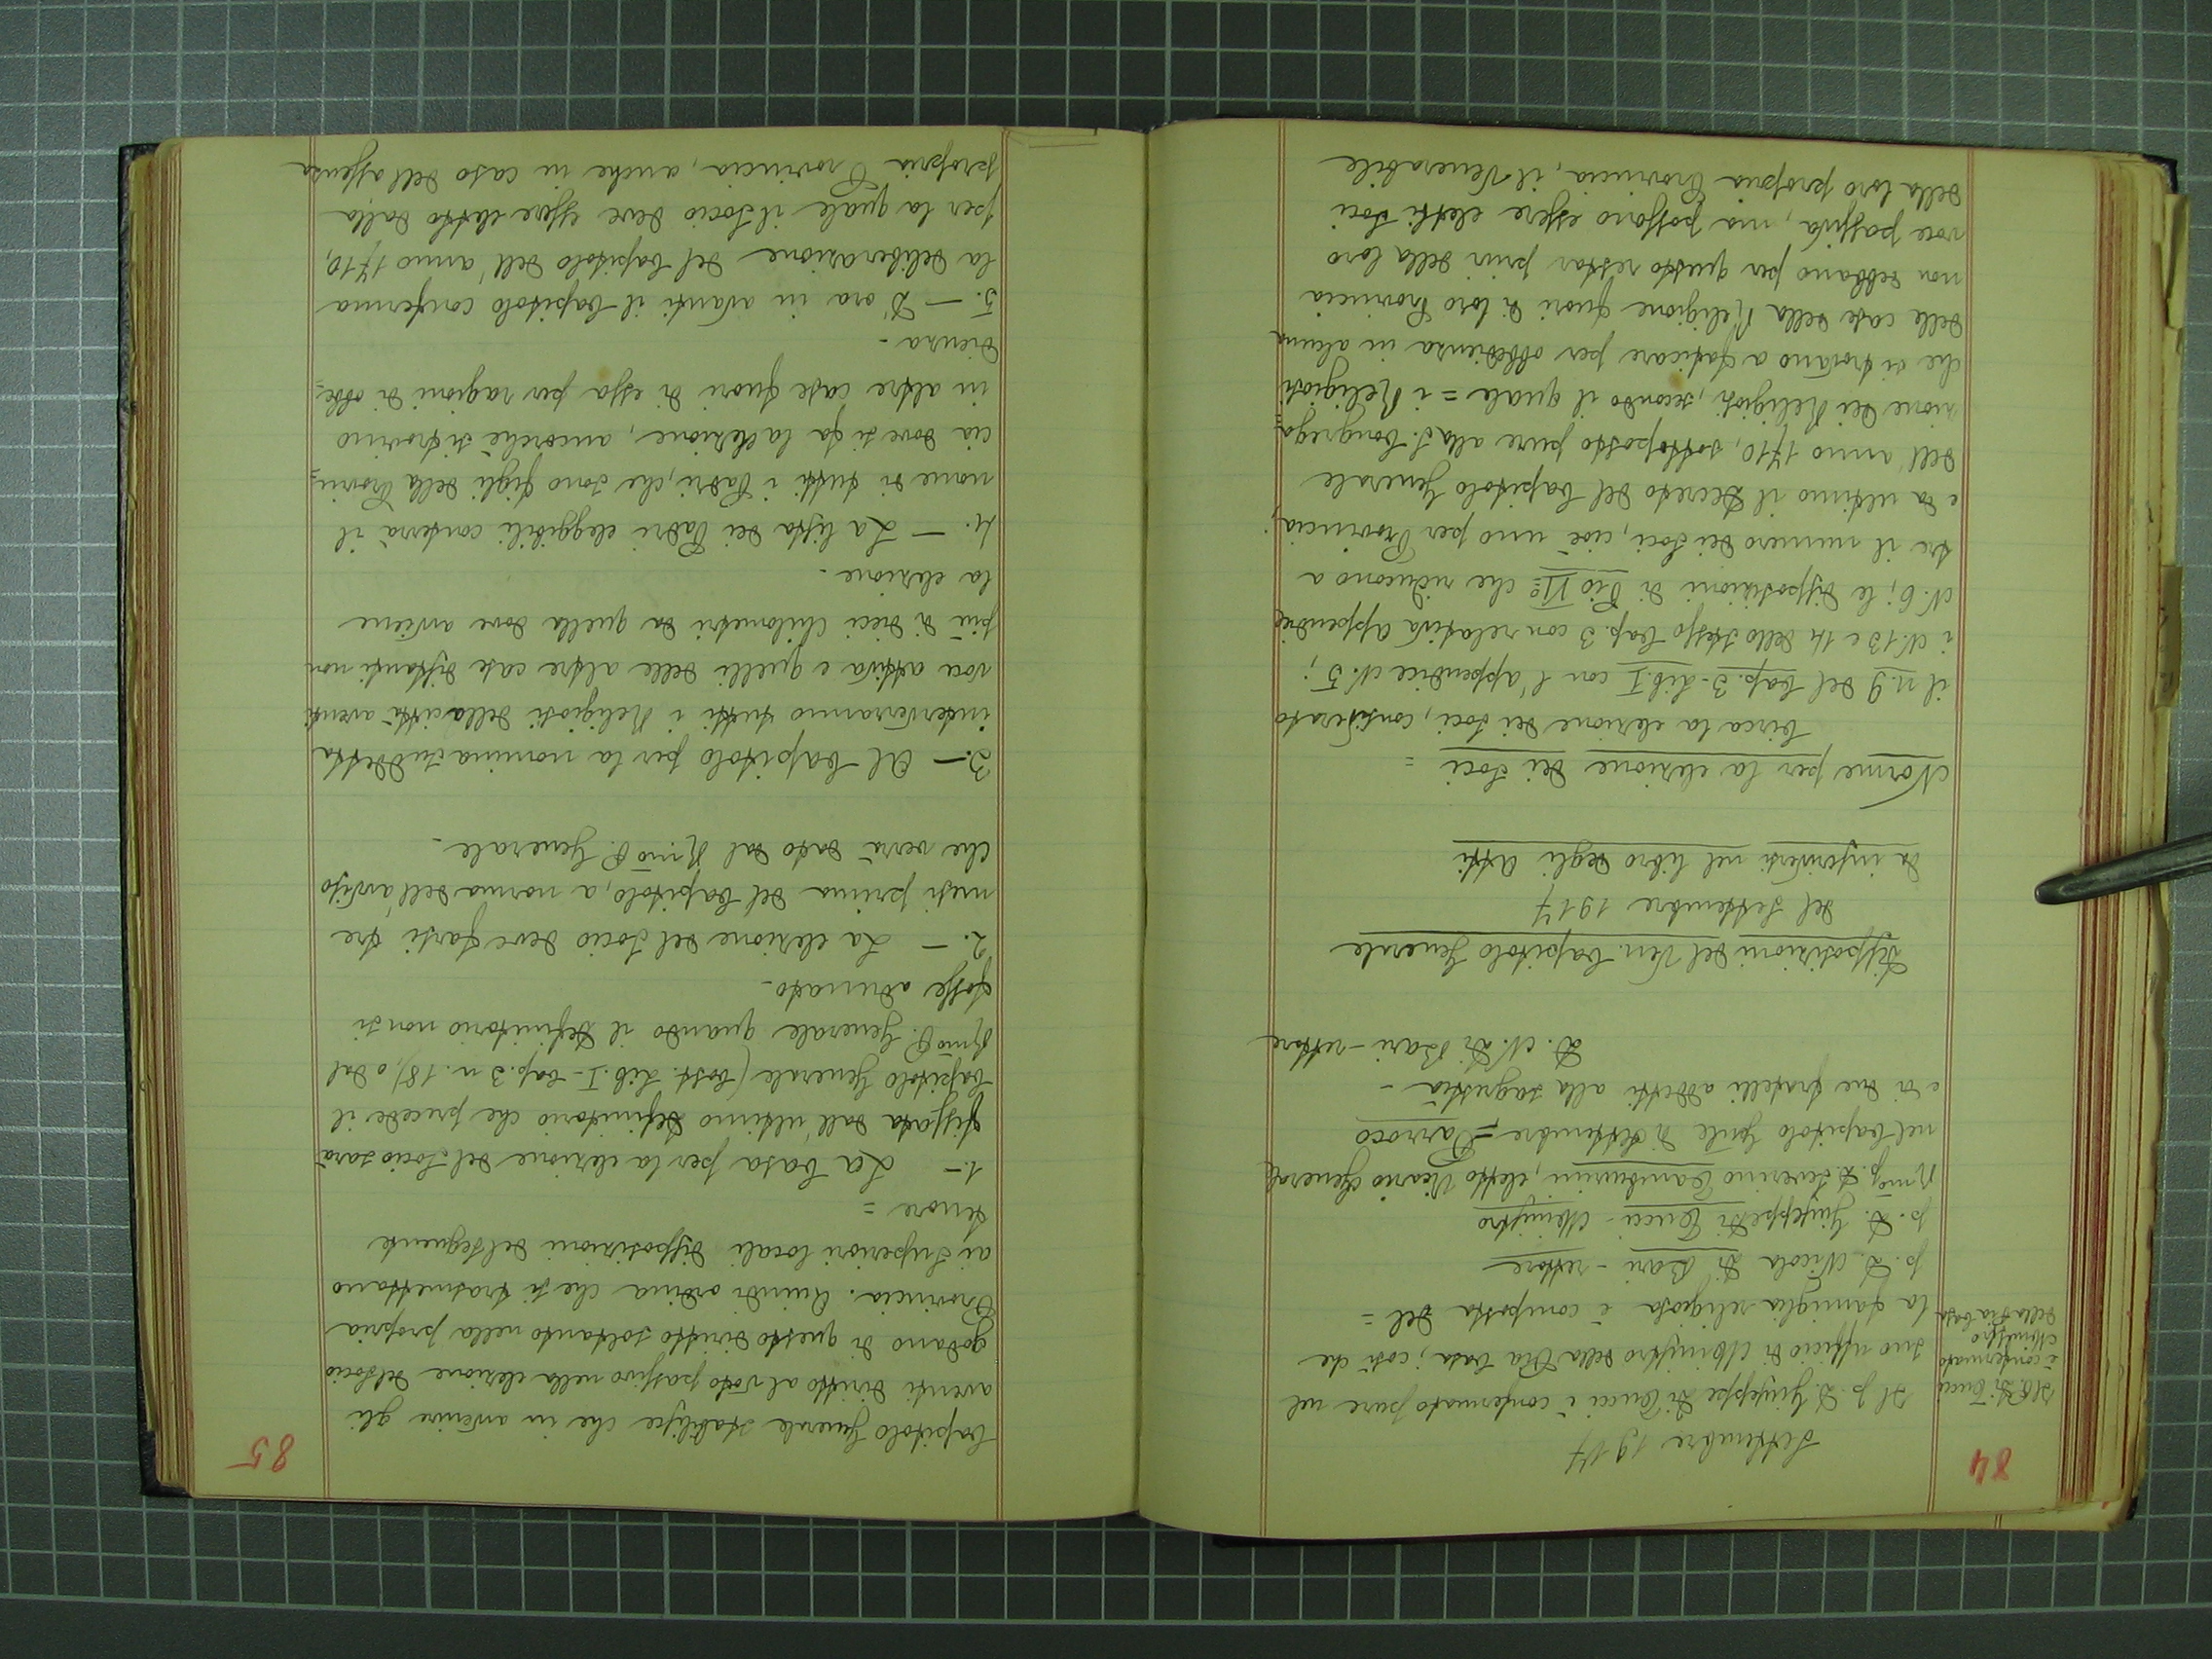 84
Settembre 1917
Il P. Di Tucci
è confermato
Ministro
della Pia Casa
Il p. D. Giuseppe Di Tucci è confermato pure nel
suo ufficio di Ministro della Pia Casa; così che
la famiglia religiosa è composta del =
p. D. Nicola Di Bari - rettore
p. D. Giuseppe Di Tucci - Ministro
Rmo p. D. Severino Tamburini, eletto Vicario General
nel Capitolo Gnle di Settembre - Parroco
e di due fratelli addetti alla sagrestia -
D. N. Di Bari - rettore
Disposizioni del Ven. Capitolo Generale
del Settembre 1917
da inserirsi nel libro degli Atti
Norme per la elezione dei Soci =
Circa la elezione dei Soci, considerato
il n. 9 del Cap. 3 - Lib. I con l'appendice N. 5;
i N. 13 e 14 dello stesso Cap. 3 con relativa appendice
N. 6; le disposizioni di Pio VI° che riducono a
tre il numero dei Soci, cioè uno per Provincia;
e da ultimo il Decreto del Capitolo Generale
dell'anno 1710, sottoposto pure alla S. Congrega=
zione dei Religiosi, secondo il quale = i Religiosi
che si trovano a faticare per obbedienza in alcuna
delle case della Religione fuori di loro Provincia
non debbano per questo restar privi della loro
voce passiva, ma possano essere eletti Soci
della loro propria Provincia, il Venerabile
85
Capitolo Generale stabilisce che in avvenire gli
aventi diritto al voto passivo nella elezione del Socio
godano di questo diritto soltanto nella propria
Provincia. Quindi ordina che si trasmettano
ai Superiori locali disposizioni del seguente
tenore =
1. - La Casa per la elezione del Socio sarà
fissata dall'ultimo Definitorio che precede il
Capitolo Generale (Cost. Lib. I - Cap. 3 n. 18), o dal
Rmo P. Generale quando il Definitorio non si
fosse adunato -
2. - La elezione del Socio deve farsi tre
mesi prima del Capitolo, a norma dell'avviso
che verrà dato dal Rmo P. Generale -
3. - Al Capitolo per la nomina suddetta
interverranno tutti i Religiosi della città aventi
voce attiva e quelli delle altre case distanti non
più di dieci chilometri da quella dove avviene
la elezione -
4. - La lista dei Padri eleggibili conterrà il
nome di tutti i Padri, che sono figli della Provin=
cia dove si fa la elezione, ancorchè si trovino
in altre case fuori di essa per ragioni di obbe=
dienza -
5. - D'ora in avanti il Capitolo conferma
la deliberazione del Capitolo dell'anno 1710,
per la quale il Socio deve essere eletto dalla
propria Provincia, anche in caso dell'assenza